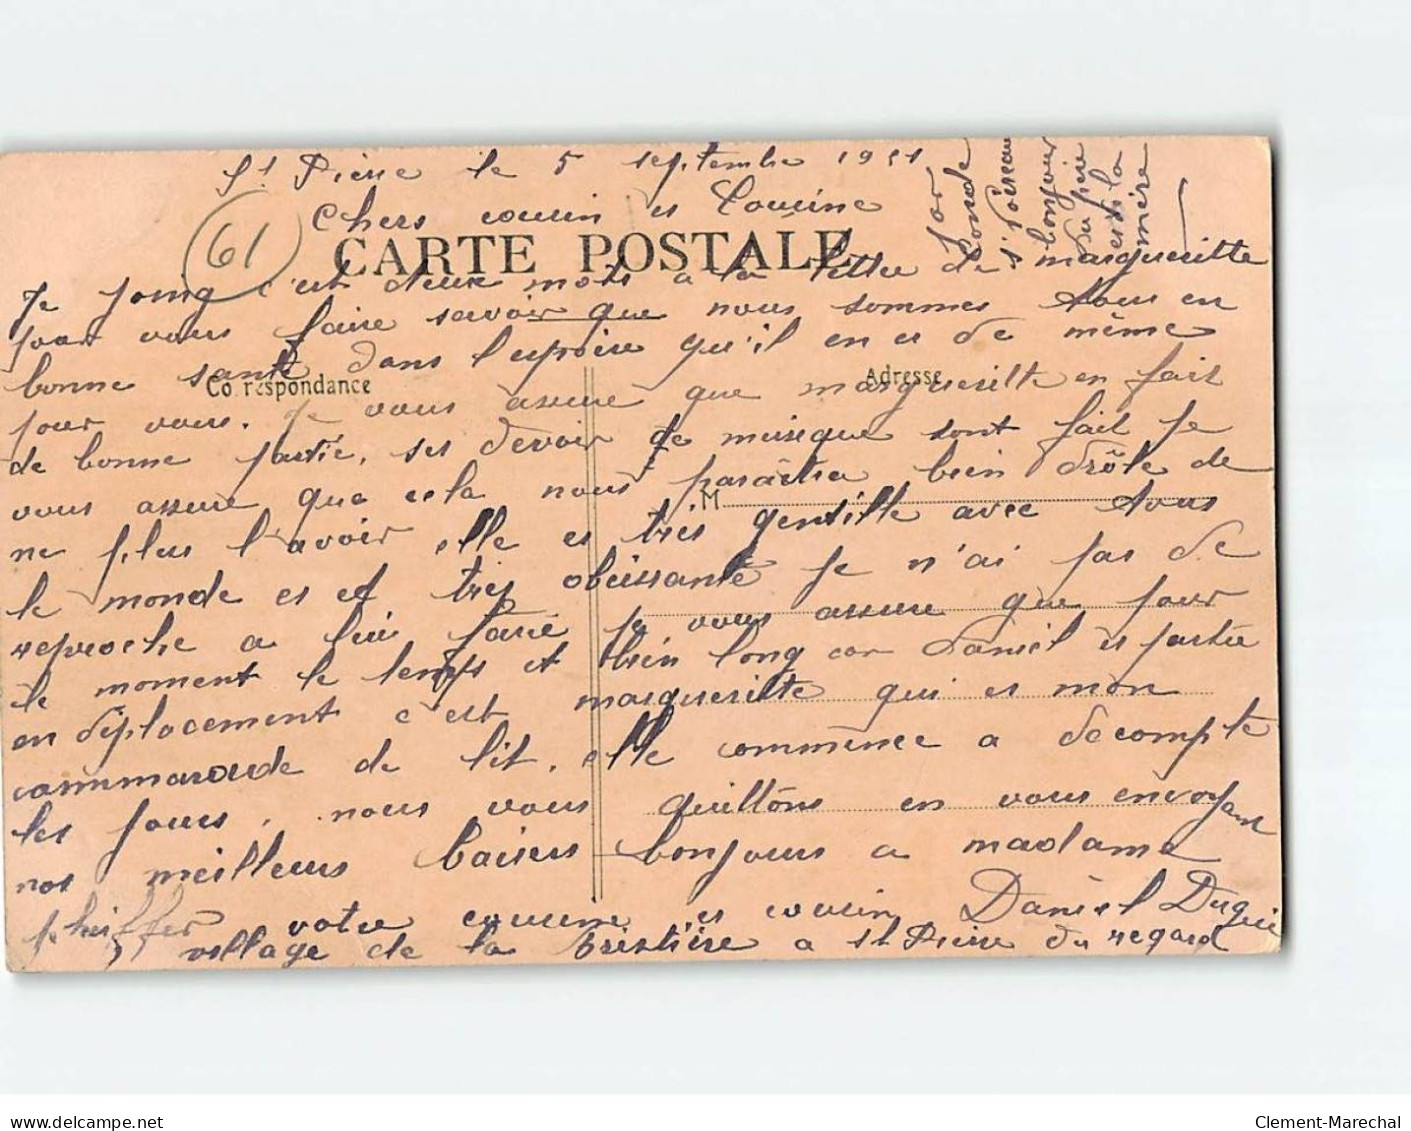 St Pierre le 5 septembre 1911
Chers cousin et Cousine
61
CARTE POSTALE
Je joing c'est deux mots a la lettre de margueritte
pour vous faire savoir que nous sommes tous en
bonne santé dans l'espoire qu'il en es de même
Correspondance
Adresse
pour vous. Je vous assure que margueritte en fait
de bonne partie, ses devoir de musique sont fait je
vous assure que cela nous paraîtra bien drôle de
M
ne plus l'avoir elle es très gentille avec tous
le monde es et très obeissante je n'ai pas de
reproche a lui faire je vous assure que pour
le moment le temps et bien long car Daniel es partie
en déplacement c'est margueritte qui es mon
cammarade de lit. elle commence a decompte
les jours, nous vous quittons en vous envoyant
nos meilleurs baisers bonjours a madame
pheiffer votre cousine es cousin Daniel
village de la Bristière a St Pierre du regard
bonjour
du
es la
mère